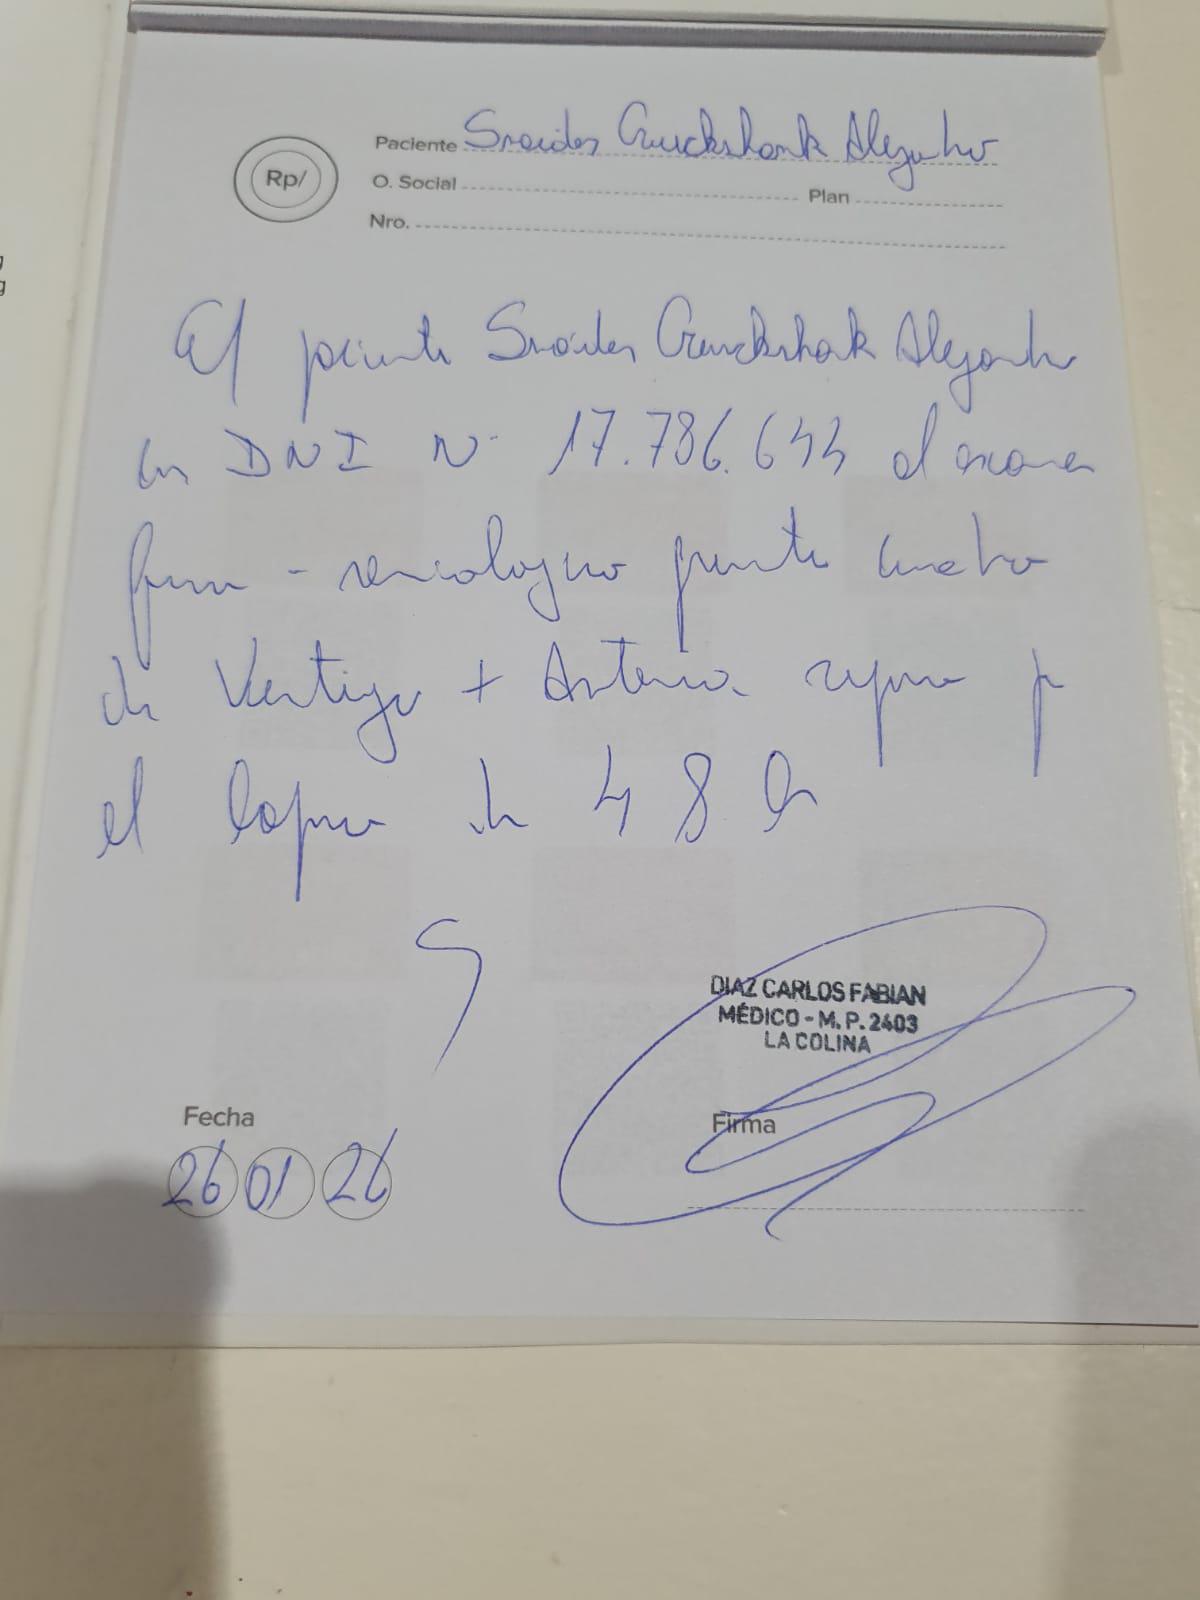 Rp/
Paciente Snaider Cruckshank Alejandro
O. Social Plan
Nro.
El paciente Snaider Cruckshank Alejandro
con DNI Nº 17.786.644 al examen
fisico - semiologico presenta cuadro
de Vertigo + Astenia reposo por
el lapso de 48 h
DIAZ CARLOS FABIAN
MÉDICO - M. P. 2403
LA COLINA
Fecha
Firma
26 01 26